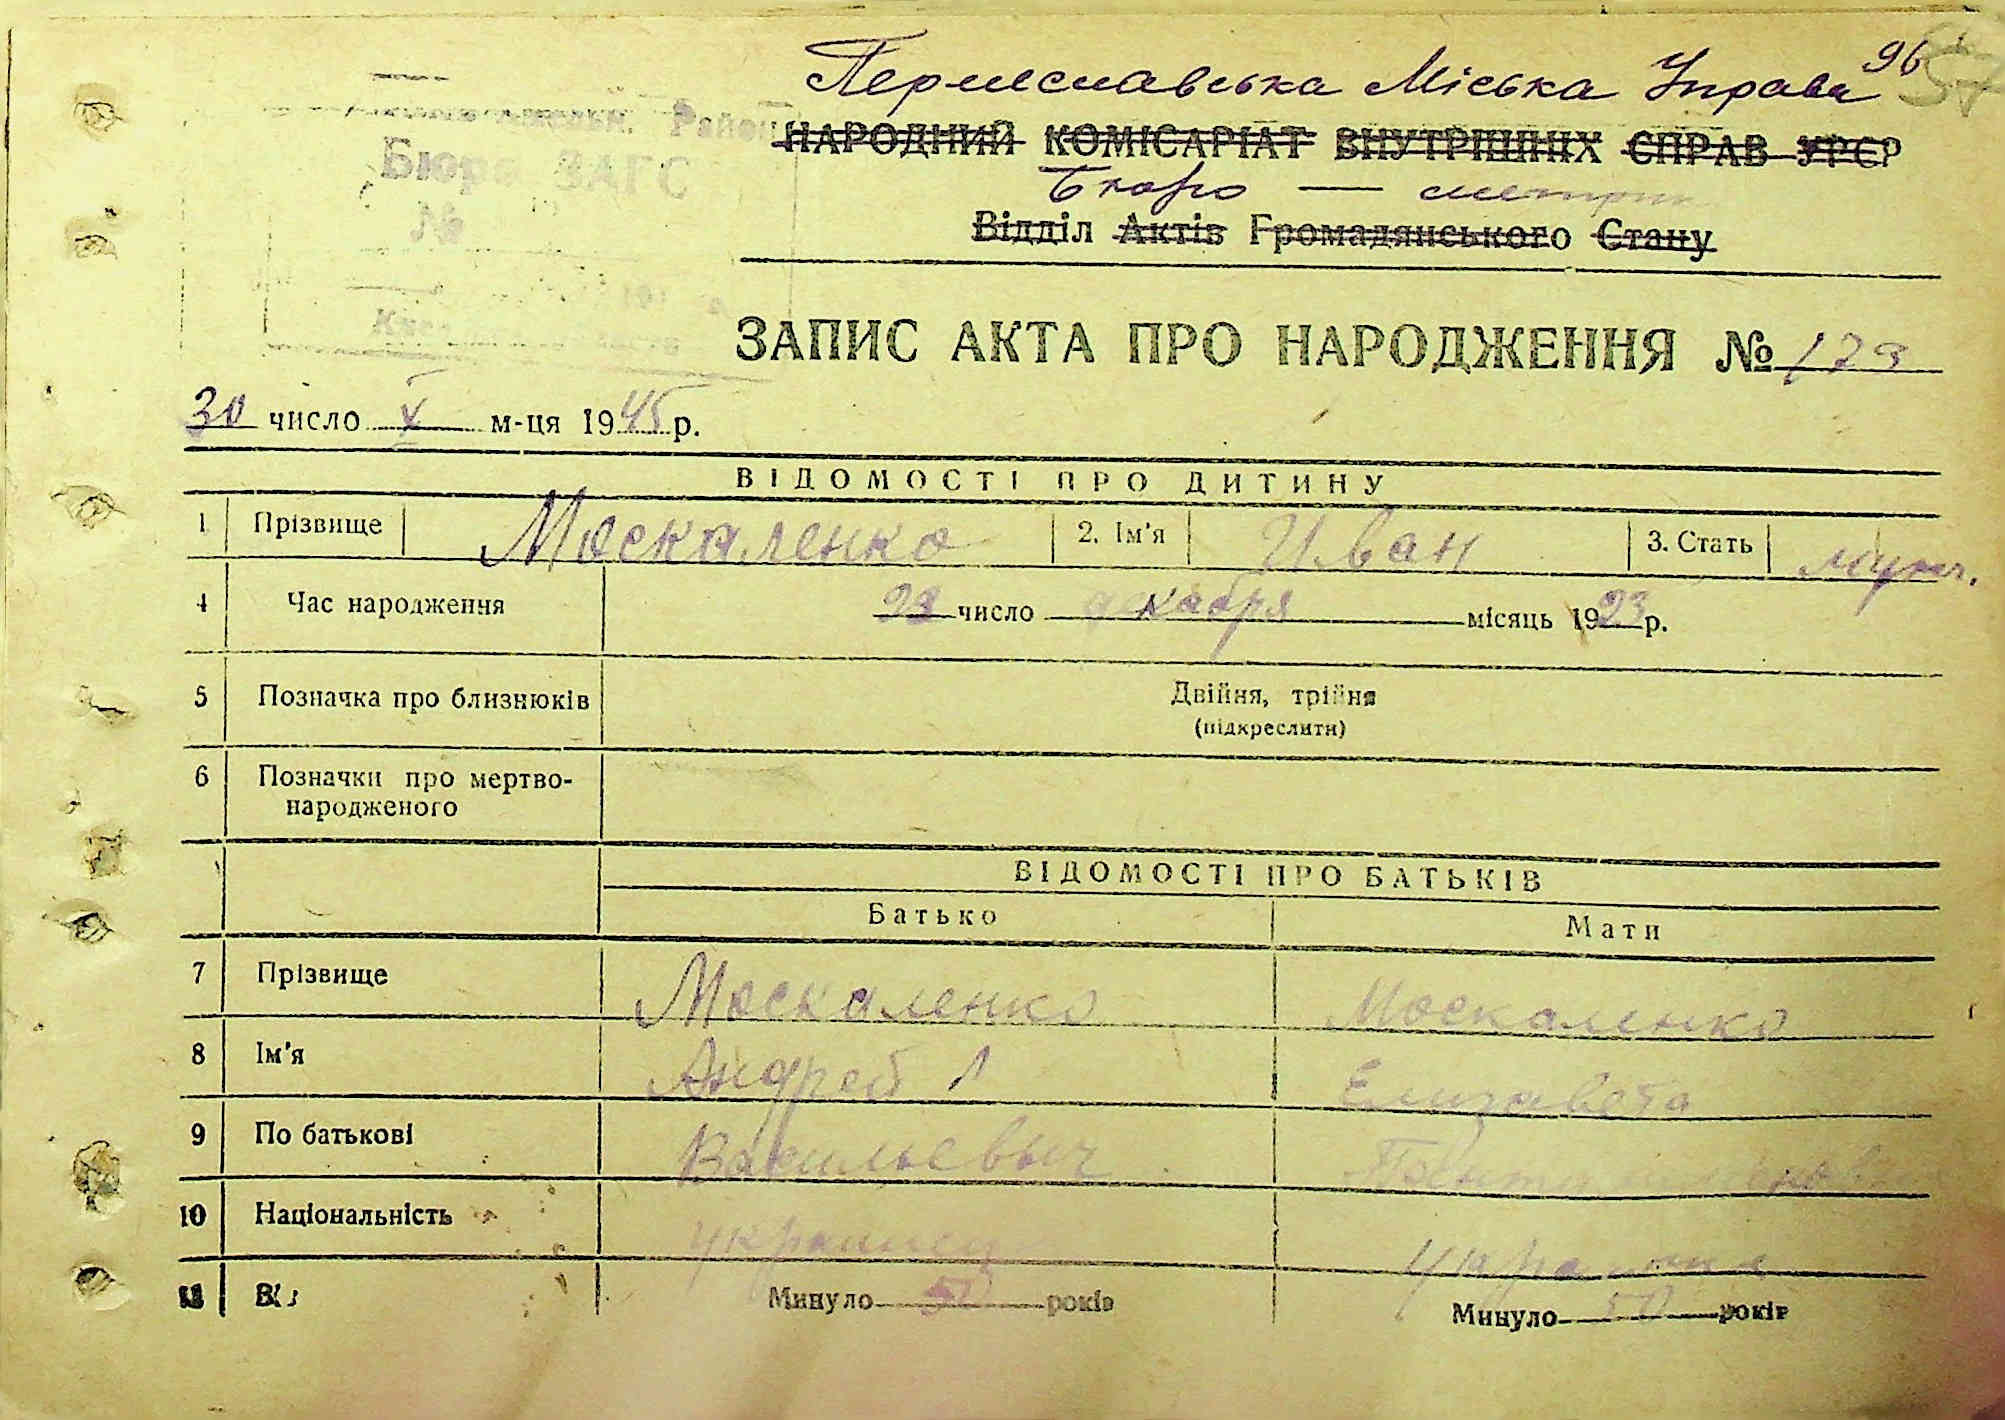 96
57
Переиславська Міська Управа
Район
НАРОДНИЙ КОМІСАРІАТ ВНУТРІШНІХ СПРАВ УРСР
Бюро ЗАГС
Бюро — метрик
№
Відділ Актів Громадянського Стану
ЗАПИС АКТА ПРО НАРОДЖЕННЯ № 173
30 число X м-ця 1945 р.
ВІДОМОСТІ ПРО ДИТИНУ
1 Прізвище Москаленко 2. Ім'я Иван 3. Стать мужч.
4 Час народження 23 число декабря місяць 1923 р.
5 Позначка про близнюків Двійня, трійня
(підкреслити)
6 Позначки про мертво-
народженого
ВІДОМОСТІ ПРО БАТЬКІВ
Батько Мати
7 Прізвище Москаленко Москаленко
8 Ім'я Андрей Елизавета
9 По батькові Васильевыч
10 Національність украинец украинка
11 Минуло 50 років Минуло 50 років